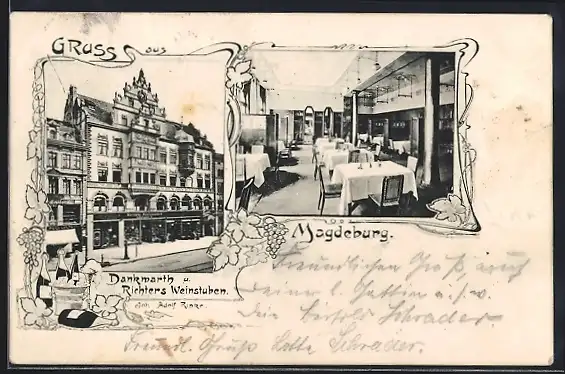 Gruss aus
Magdeburg.
Dankwarth u.
Richters Weinstuben.
Inh. Adolf Rinke.
Freundlichen Gruß, auch
deiner l. Gattin u.s.w.
Dein Schrader.
Freundl. Gruß Schrader.